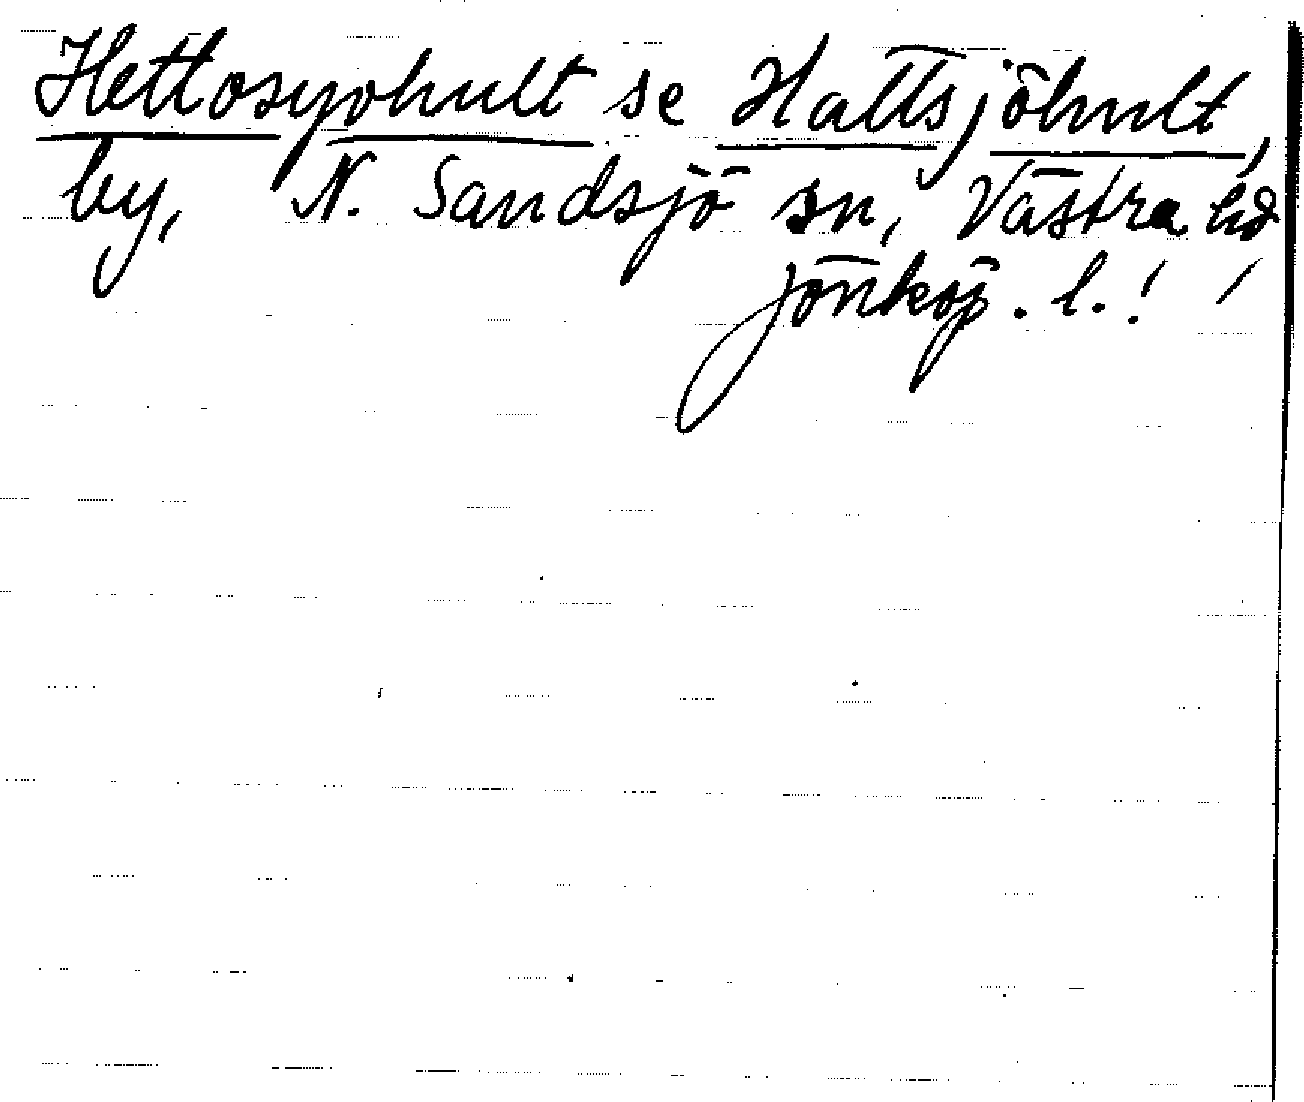 Hettosyohult se Hattsjöhult,
by, N. Sandsjö sn, Västra hd
Jönköp. l.!